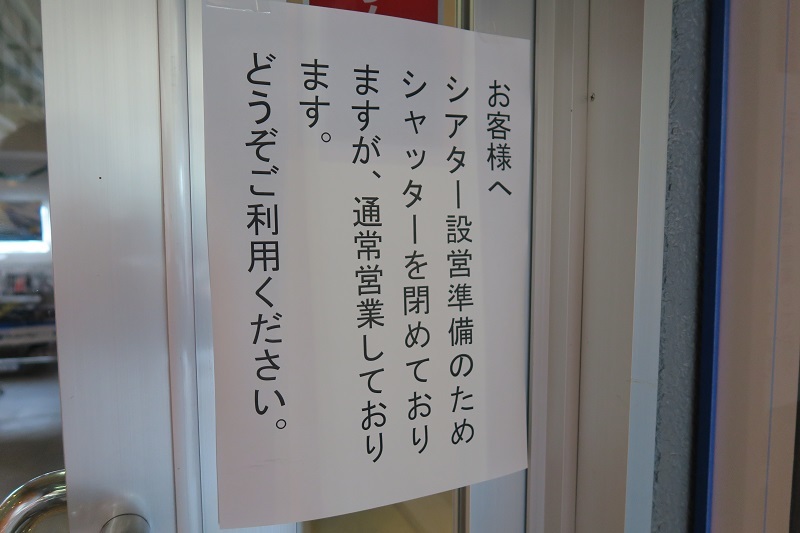 お客様へ
シアター設営準備のため
シャッターを閉めており
ますが、通常営業しており
ます。
どうぞご利用ください。